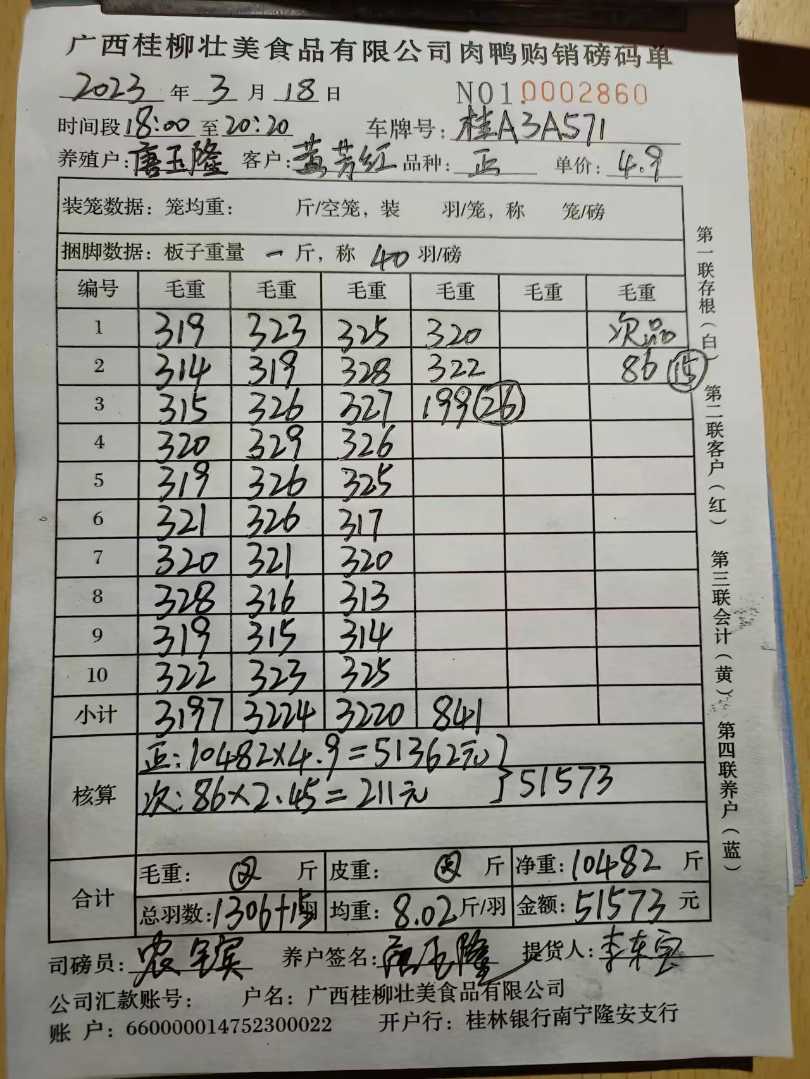 广西桂柳壮美食品有限公司肉鸭购销磅码单
2023 年 3 月 18 日 NO1.0002860
时间段 18:00 至 20:20 车牌号: 桂A3A571
养殖户: 唐玉隆 客户: 黄芳红 品种: 正 单价: 4.9
装笼数据: 笼均重: 斤/空笼, 装 羽/笼, 称 笼/磅
捆脚数据: 板子重量 一 斤, 称 40 羽/磅
编号 毛重 毛重 毛重 毛重 毛重 毛重
1 319 323 325 320 次品
2 314 319 328 322 86 (15)
3 315 326 327 199 (26)
4 320 329 326
5 319 326 325
6 321 326 317
7 320 321 320
8 328 316 313
9 319 315 314
10 322 323 325
小计 3197 3224 3220 841
核算 正: 10482×4.9=51362元
次: 86×2.45=211元 }51573
合计 毛重: 斤 皮重: 斤 净重: 10482 斤
总羽数: 1306+15羽 均重: 8.02斤/羽 金额: 51573 元
司磅员: 养户签名: 唐玉隆 提货人:
公司汇款账号: 户名: 广西桂柳壮美食品有限公司
账 户: 660000014752300022 开户行: 桂林银行南宁隆安支行
第一联存根(白) 第二联客户(红) 第三联会计(黄) 第四联养户(蓝)